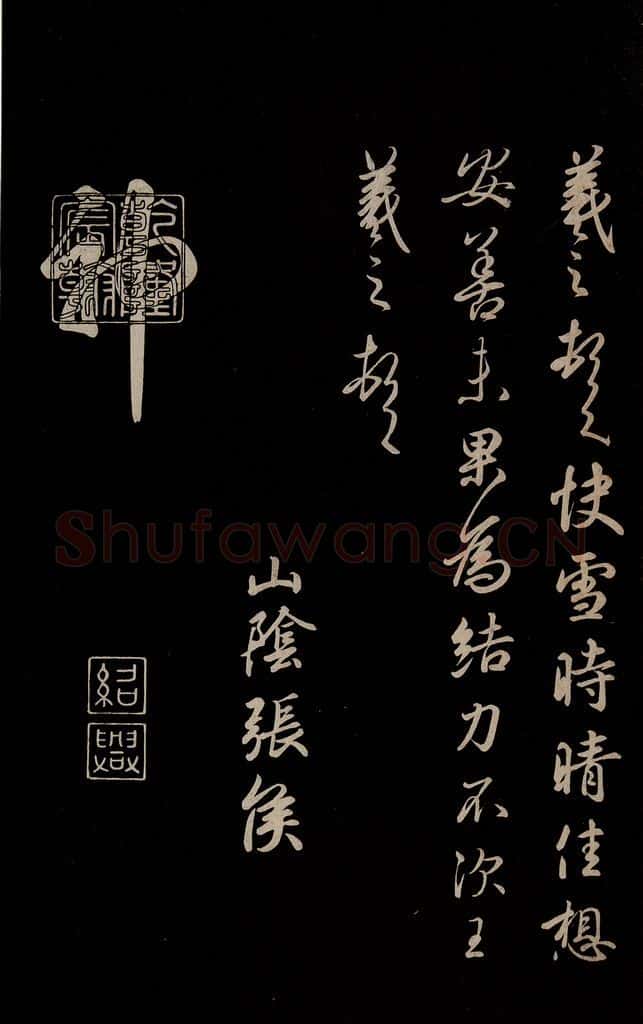 羲之頓首快雪時晴佳想
安善未果為結力不次王
羲之頓首
山陰張侯
神
乾隆宸翰
紹興
Shufawang.CN